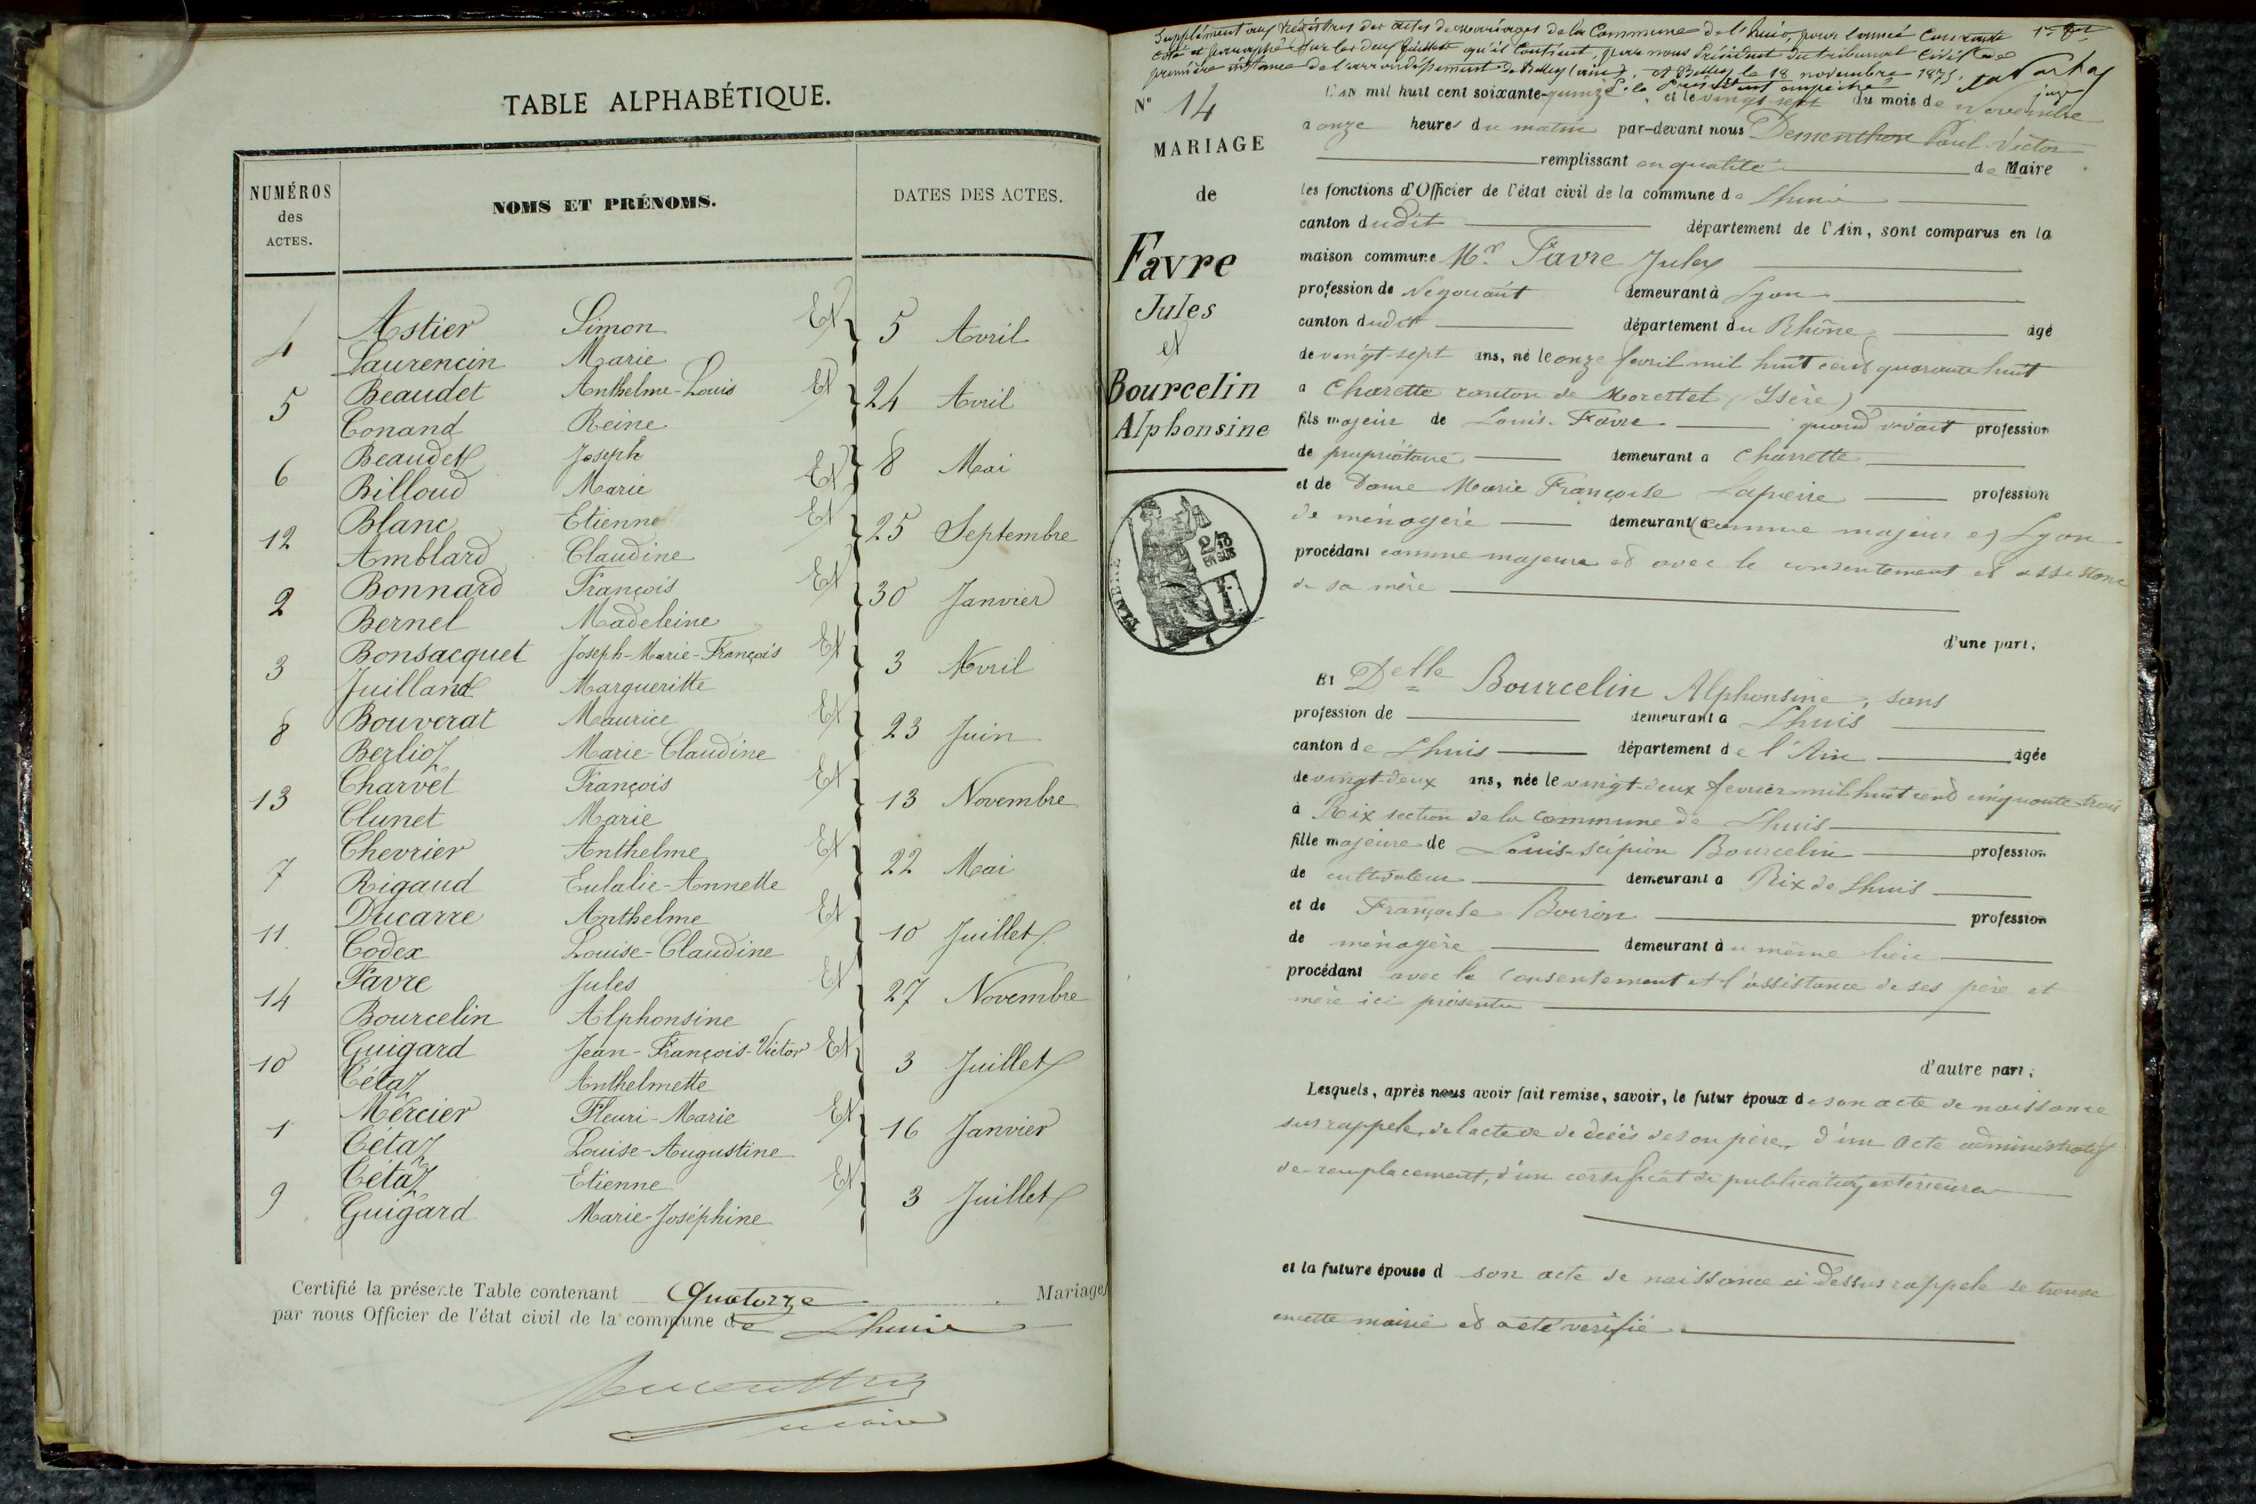 TABLE ALPHABÉTIQUE.
NUMÉROS des ACTES.
NOMS ET PRÉNOMS.
DATES DES ACTES.
4 Astier Simon Et 5 Avril
Laurencin Marie
5 Beaudet Anthelme-Louis Et 24 Avril
Conand Reine
6 Beaudet Joseph 8 Mai
Billoud Marie Et
12 Blanc Etienne Et 25 Septembre
Amblard Claudine
2 Bonnard François Et 30 Janvier
Bernel Madeleine
3 Bonsacquet Joseph-Marie-François Et 3 Avril
Juilland Margueritte
8 Bouverat Maurice Et 23 Juin
Berlioz Marie-Claudine
13 Charvet François Et 13 Novembre
Clunet Marie
7 Chevrier Anthelme Et 22 Mai
Rigaud Eulalie-Annette
11 Ducarre Anthelme Et 10 Juillet
Codex Louise-Claudine
14 Favre Jules Et 27 Novembre
Bourcelin Alphonsine
10 Guigard Jean-François-Victor Et 3 Juillet
Cétaz Anthelmette
1 Mercier Fleuri-Marie Et 16 Janvier
Cétaz Louise-Augustine
9 Cétaz Etienne Et 3 Juillet
Guigard Marie-Joséphine
Certifié la présente Table contenant Quatorze Mariages
par nous Officier de l'état civil de la commune de Lhuis
maire
Supplément aux Registres des actes de mariages de la Commune de Lhuis, pour l'année Courante
coté et paraphé sur les deux feuillets qu'il Contient, par nous Président du tribunal Civil de
première instance de l'arrondissement de Belley (ain). A Belley le 18 novembre 1875.
le Président empêché
juge
N° 14
MARIAGE
de
Favre
Jules
et
Bourcelin
Alphonsine
TIMBRE
2/10 EN SUS
L'AN mil huit cent soixante-quinze, et le vingt-sept du mois de Novembre
a onze heures du matin par-devant nous Dementhon Paul-Victor
remplissant en qualité de Maire
les fonctions d'Officier de l'état civil de la commune de Lhuis
canton dudit département de l'Ain, sont comparus en la
maison commune Mr. Favre Jules
profession de Négociant demeurant à Lyon
canton dudit département du Rhône agé
de vingt-sept ans, né le onze avril mil huit cent quarante huit
a Charette canton de Morestel (Isère)
fils majeur de Louis Favre quand vivait profession
de propriétaire demeurant a Charrette
et de Dame Marie Françoise Lapierre profession
de ménagère demeurant a (comme majeur e) Lyon
procédant comme majeur et avec le consentement et assistance
de sa mère
d'une part.
Et Delle Bourcelin Alphonsine, sans
profession de demeurant a Lhuis
canton de Lhuis département de l'Ain agée
de vingt-deux ans, née le vingt-deux fevrier mil huit cent cinquante trois
à Rix section de la commune de Lhuis
fille majeure de Louis-Scipion Bourcelin profession
de cultivateur demeurant a Rix de Lhuis
et de Françoise Boiron profession
de ménagère demeurant au même lieu
procédant avec le consentement et l'assistance de ses père et
mère ici présents
d'autre part;
Lesquels, après nous avoir fait remise, savoir, le futur époux de son acte de naissance
sus rappelé, de l'acte de décès de son père, d'un acte administratif
de remplacement, d'un certificat de publication extérieure
et la future épouse d son acte de naissance ci dessus rappelé se trouve
en cette mairie et a été vérifié